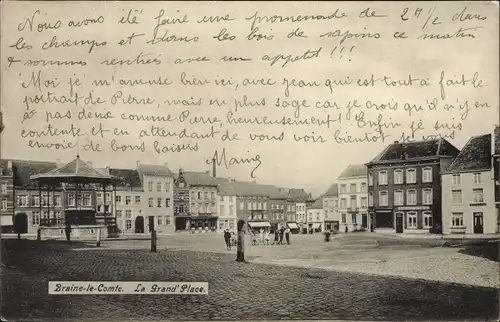 Nous avons été faire une promenade de 2 h 1/2 dans
les champs et dans les bois de sapins ce matin
& sommes rentrés avec un appetit !!!
Moi je m'amuse bien ici, avec jean qui est tout à fait le
portrait de Pierre, mais en plus sage car je crois qu'il n'y en
à pas deux comme Pierre, heureusement ! Enfin je suis
contente et en attendant de vous voir bientôt, je vous
envoie de bons baisers
Braine-le-Comte. La Grand' Place.